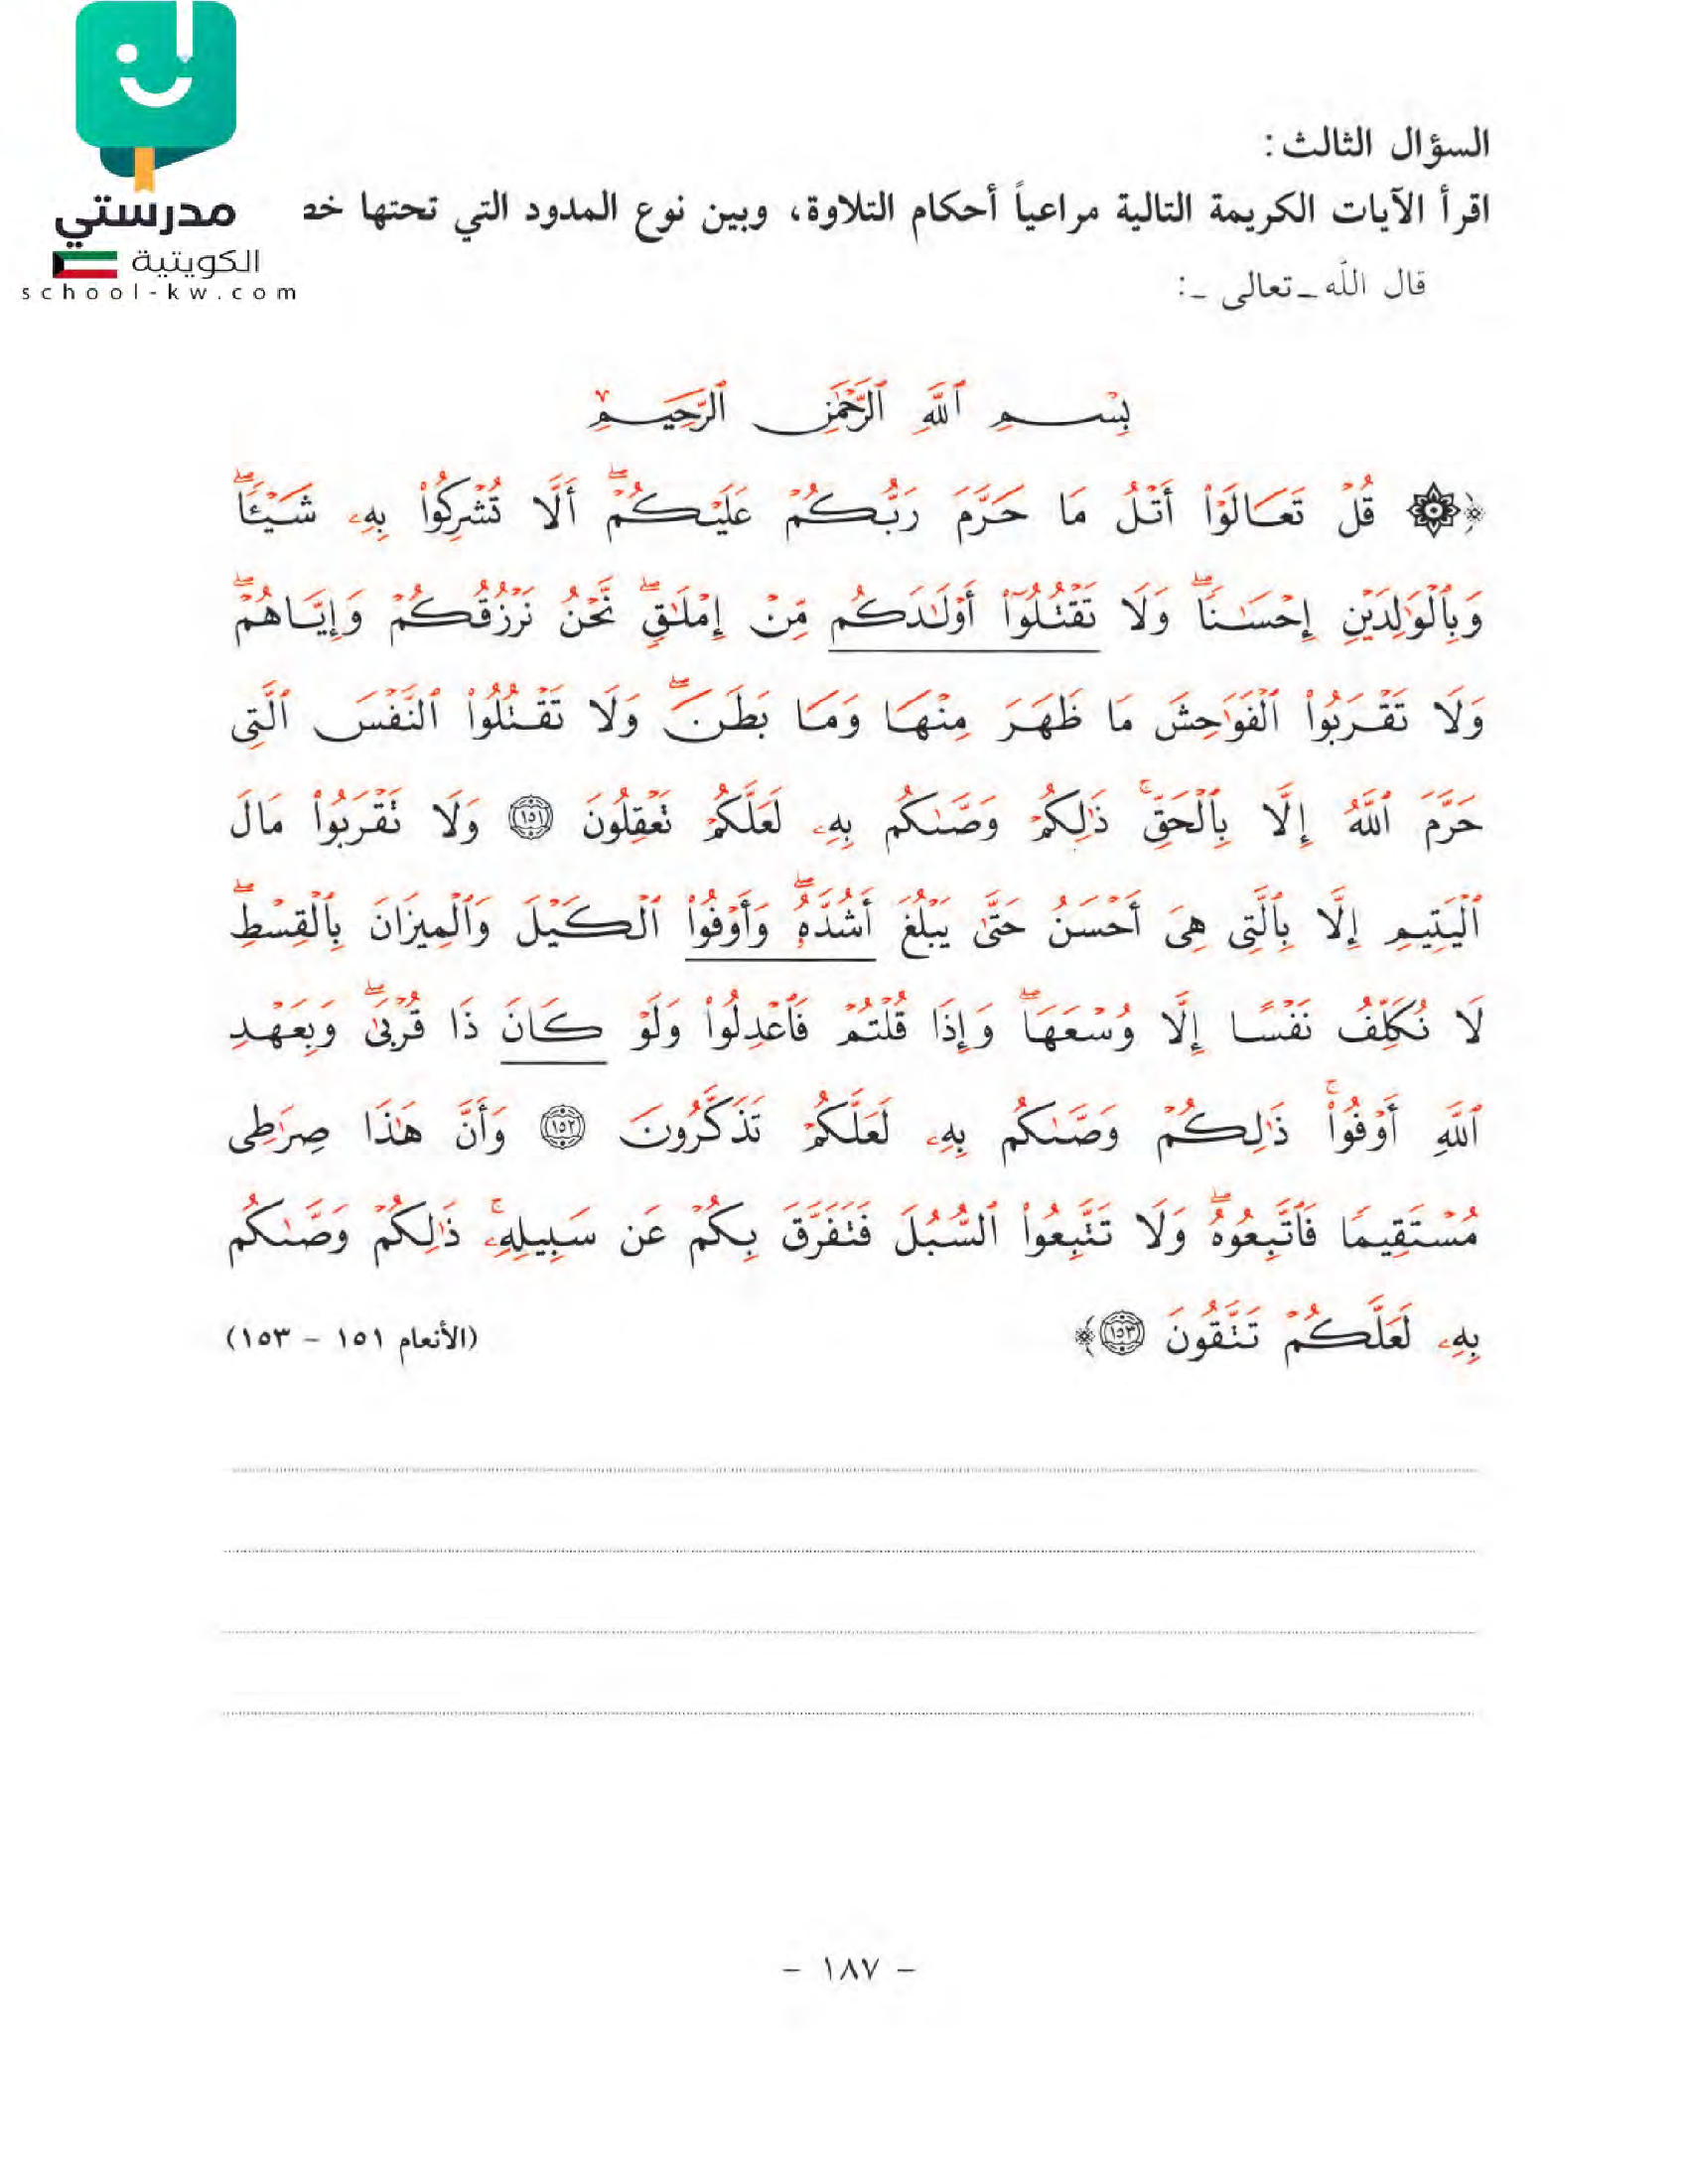 مدرستي
الكويتية
school-kw.com
السؤال الثالث:
اقرأ الآيات الكريمة التالية مراعياً أحكام التلاوة، وبين نوع المدود التي تحتها خط
قال الله ـ تعالى ـ:
بِسْمِ ٱللَّهِ ٱلرَّحْمَٰنِ ٱلرَّحِيمِ
﴿۞ قُلْ تَعَالَوْا۟ أَتْلُ مَا حَرَّمَ رَبُّكُمْ عَلَيْكُمْ ۖ أَلَّا تُشْرِكُوا۟ بِهِۦ شَيْـًٔا ۖ
وَبِٱلْوَٰلِدَيْنِ إِحْسَٰنًا ۖ وَلَا تَقْتُلُوٓا۟ أَوْلَٰدَكُم مِّنْ إِمْلَٰقٍ ۖ نَّحْنُ نَرْزُقُكُمْ وَإِيَّاهُمْ ۖ
وَلَا تَقْرَبُوا۟ ٱلْفَوَٰحِشَ مَا ظَهَرَ مِنْهَا وَمَا بَطَنَ ۖ وَلَا تَقْتُلُوا۟ ٱلنَّفْسَ ٱلَّتِى
حَرَّمَ ٱللَّهُ إِلَّا بِٱلْحَقِّ ۚ ذَٰلِكُمْ وَصَّىٰكُم بِهِۦ لَعَلَّكُمْ تَعْقِلُونَ ١٥١ وَلَا تَقْرَبُوا۟ مَالَ
ٱلْيَتِيمِ إِلَّا بِٱلَّتِى هِىَ أَحْسَنُ حَتَّىٰ يَبْلُغَ أَشُدَّهُۥ ۖ وَأَوْفُوا۟ ٱلْكَيْلَ وَٱلْمِيزَانَ بِٱلْقِسْطِ ۖ
لَا نُكَلِّفُ نَفْسًا إِلَّا وُسْعَهَا ۖ وَإِذَا قُلْتُمْ فَٱعْدِلُوا۟ وَلَوْ كَانَ ذَا قُرْبَىٰ ۖ وَبِعَهْدِ
ٱللَّهِ أَوْفُوا۟ ۚ ذَٰلِكُمْ وَصَّىٰكُم بِهِۦ لَعَلَّكُمْ تَذَكَّرُونَ ١٥٢ وَأَنَّ هَٰذَا صِرَٰطِى
مُسْتَقِيمًا فَٱتَّبِعُوهُ ۖ وَلَا تَتَّبِعُوا۟ ٱلسُّبُلَ فَتَفَرَّقَ بِكُمْ عَن سَبِيلِهِۦ ۚ ذَٰلِكُمْ وَصَّىٰكُم
بِهِۦ لَعَلَّكُمْ تَتَّقُونَ ١٥٣﴾ (الأنعام ١٥١ – ١٥٣)
– ١٨٧ –